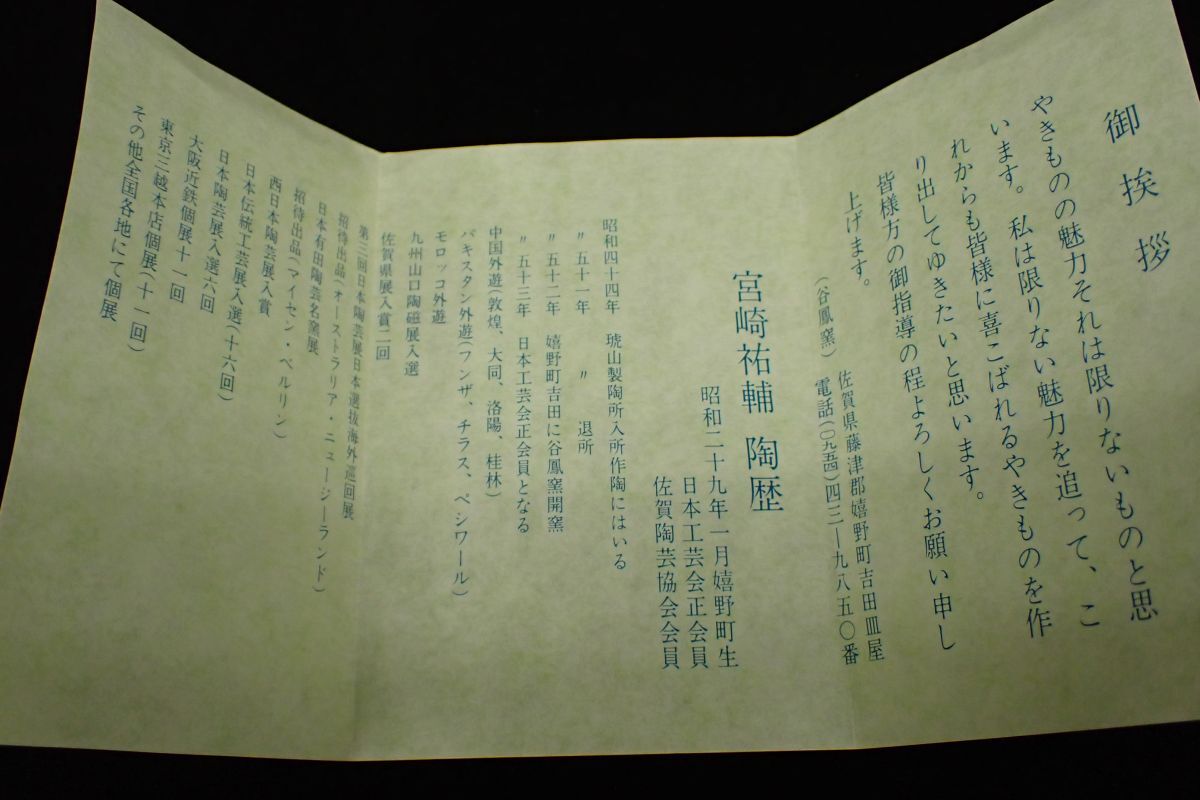 御挨拶
やきものの魅力それは限りないものと思
います。私は限りない魅力を追って、こ
れからも皆様に喜こばれるやきものを作
り出してゆきたいと思います。
皆様方の御指導の程よろしくお願い申し
上げます。
佐賀県藤津郡嬉野町吉田皿屋
(谷鳳窯) 電話(〇九五四)四三―九八五〇番
宮崎祐輔 陶歴
昭和二十九年一月嬉野町生
日本工芸会正会員
佐賀陶芸協会会員
昭和四十四年 琥山製陶所入所作陶にはいる
〃五十一年 〃 退所
〃五十二年 嬉野町吉田に谷鳳窯開窯
〃五十三年 日本工芸会正会員となる
中国外遊(敦煌、大同、洛陽、桂林)
パキスタン外遊(フンザ、チラス、ペシワール)
モロッコ外遊
九州山口陶磁展入選
佐賀県展入賞二回
第三回日本陶芸展日本選抜海外巡回展
招待出品(オーストラリア・ニュージーランド)
日本有田陶芸名窯展
招待出品(マイセン・ベルリン)
西日本陶芸展入賞
日本伝統工芸展入選(十六回)
日本陶芸展入選六回
大阪近鉄個展十一回
東京三越本店個展(十一回)
その他全国各地にて個展